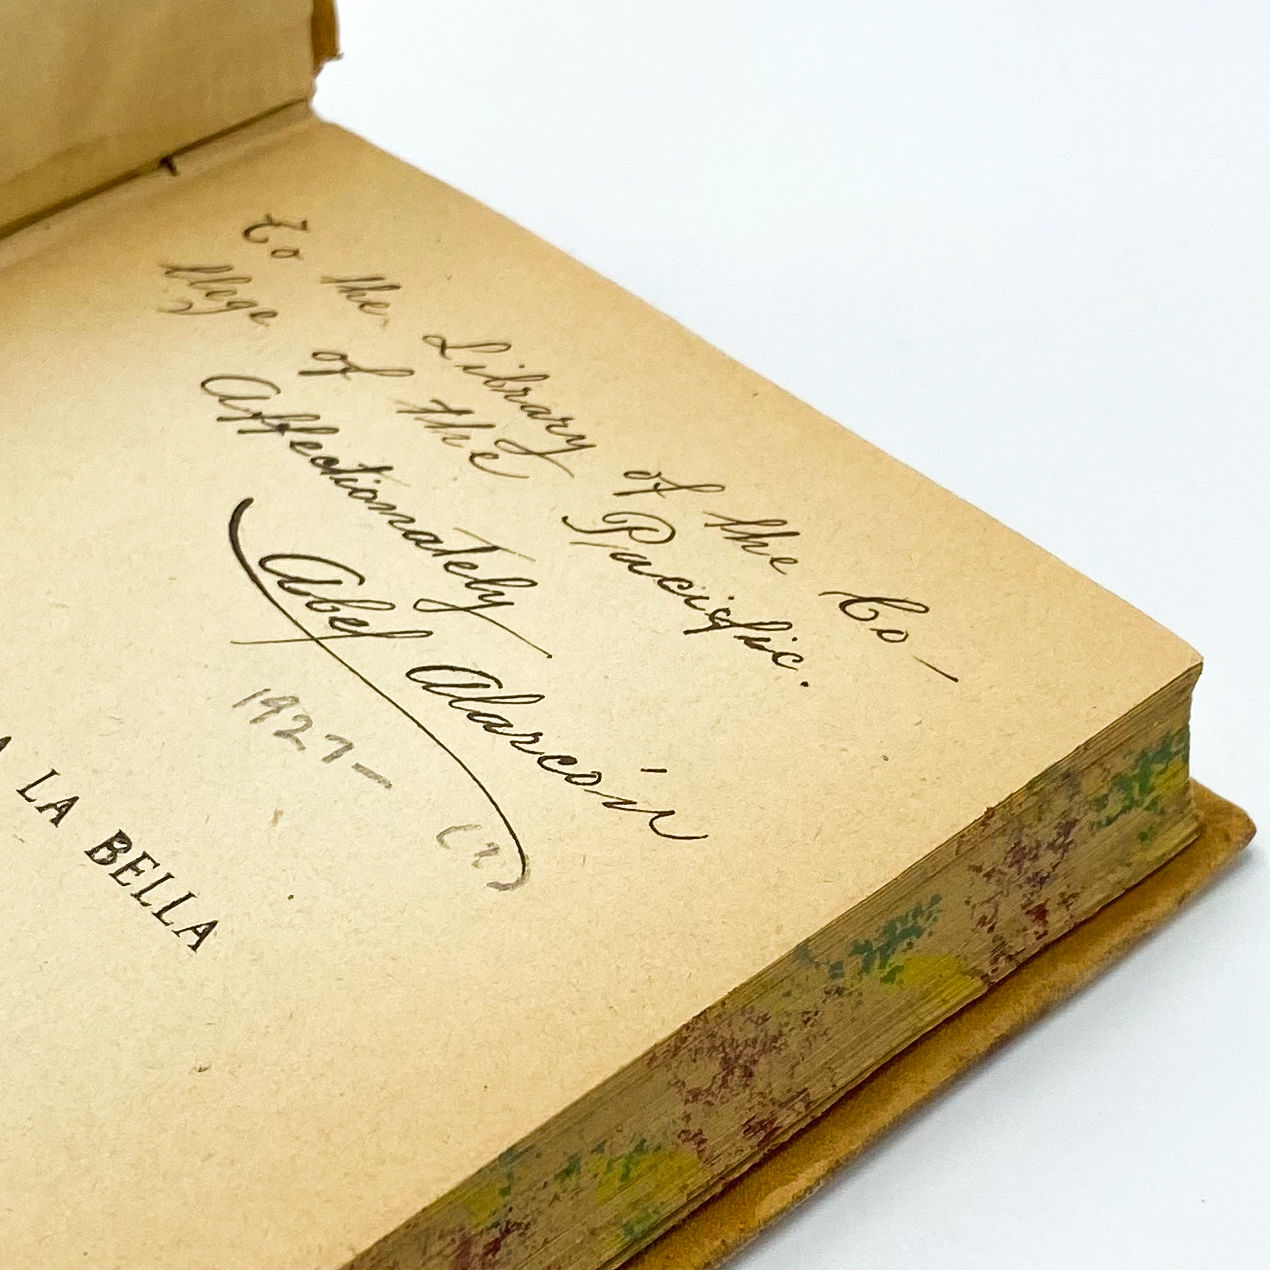 To the Library of the Co-
llege of the Pacific.
Affectionately
Abel Alarcón
1927 —
(?)
A LA BELLA